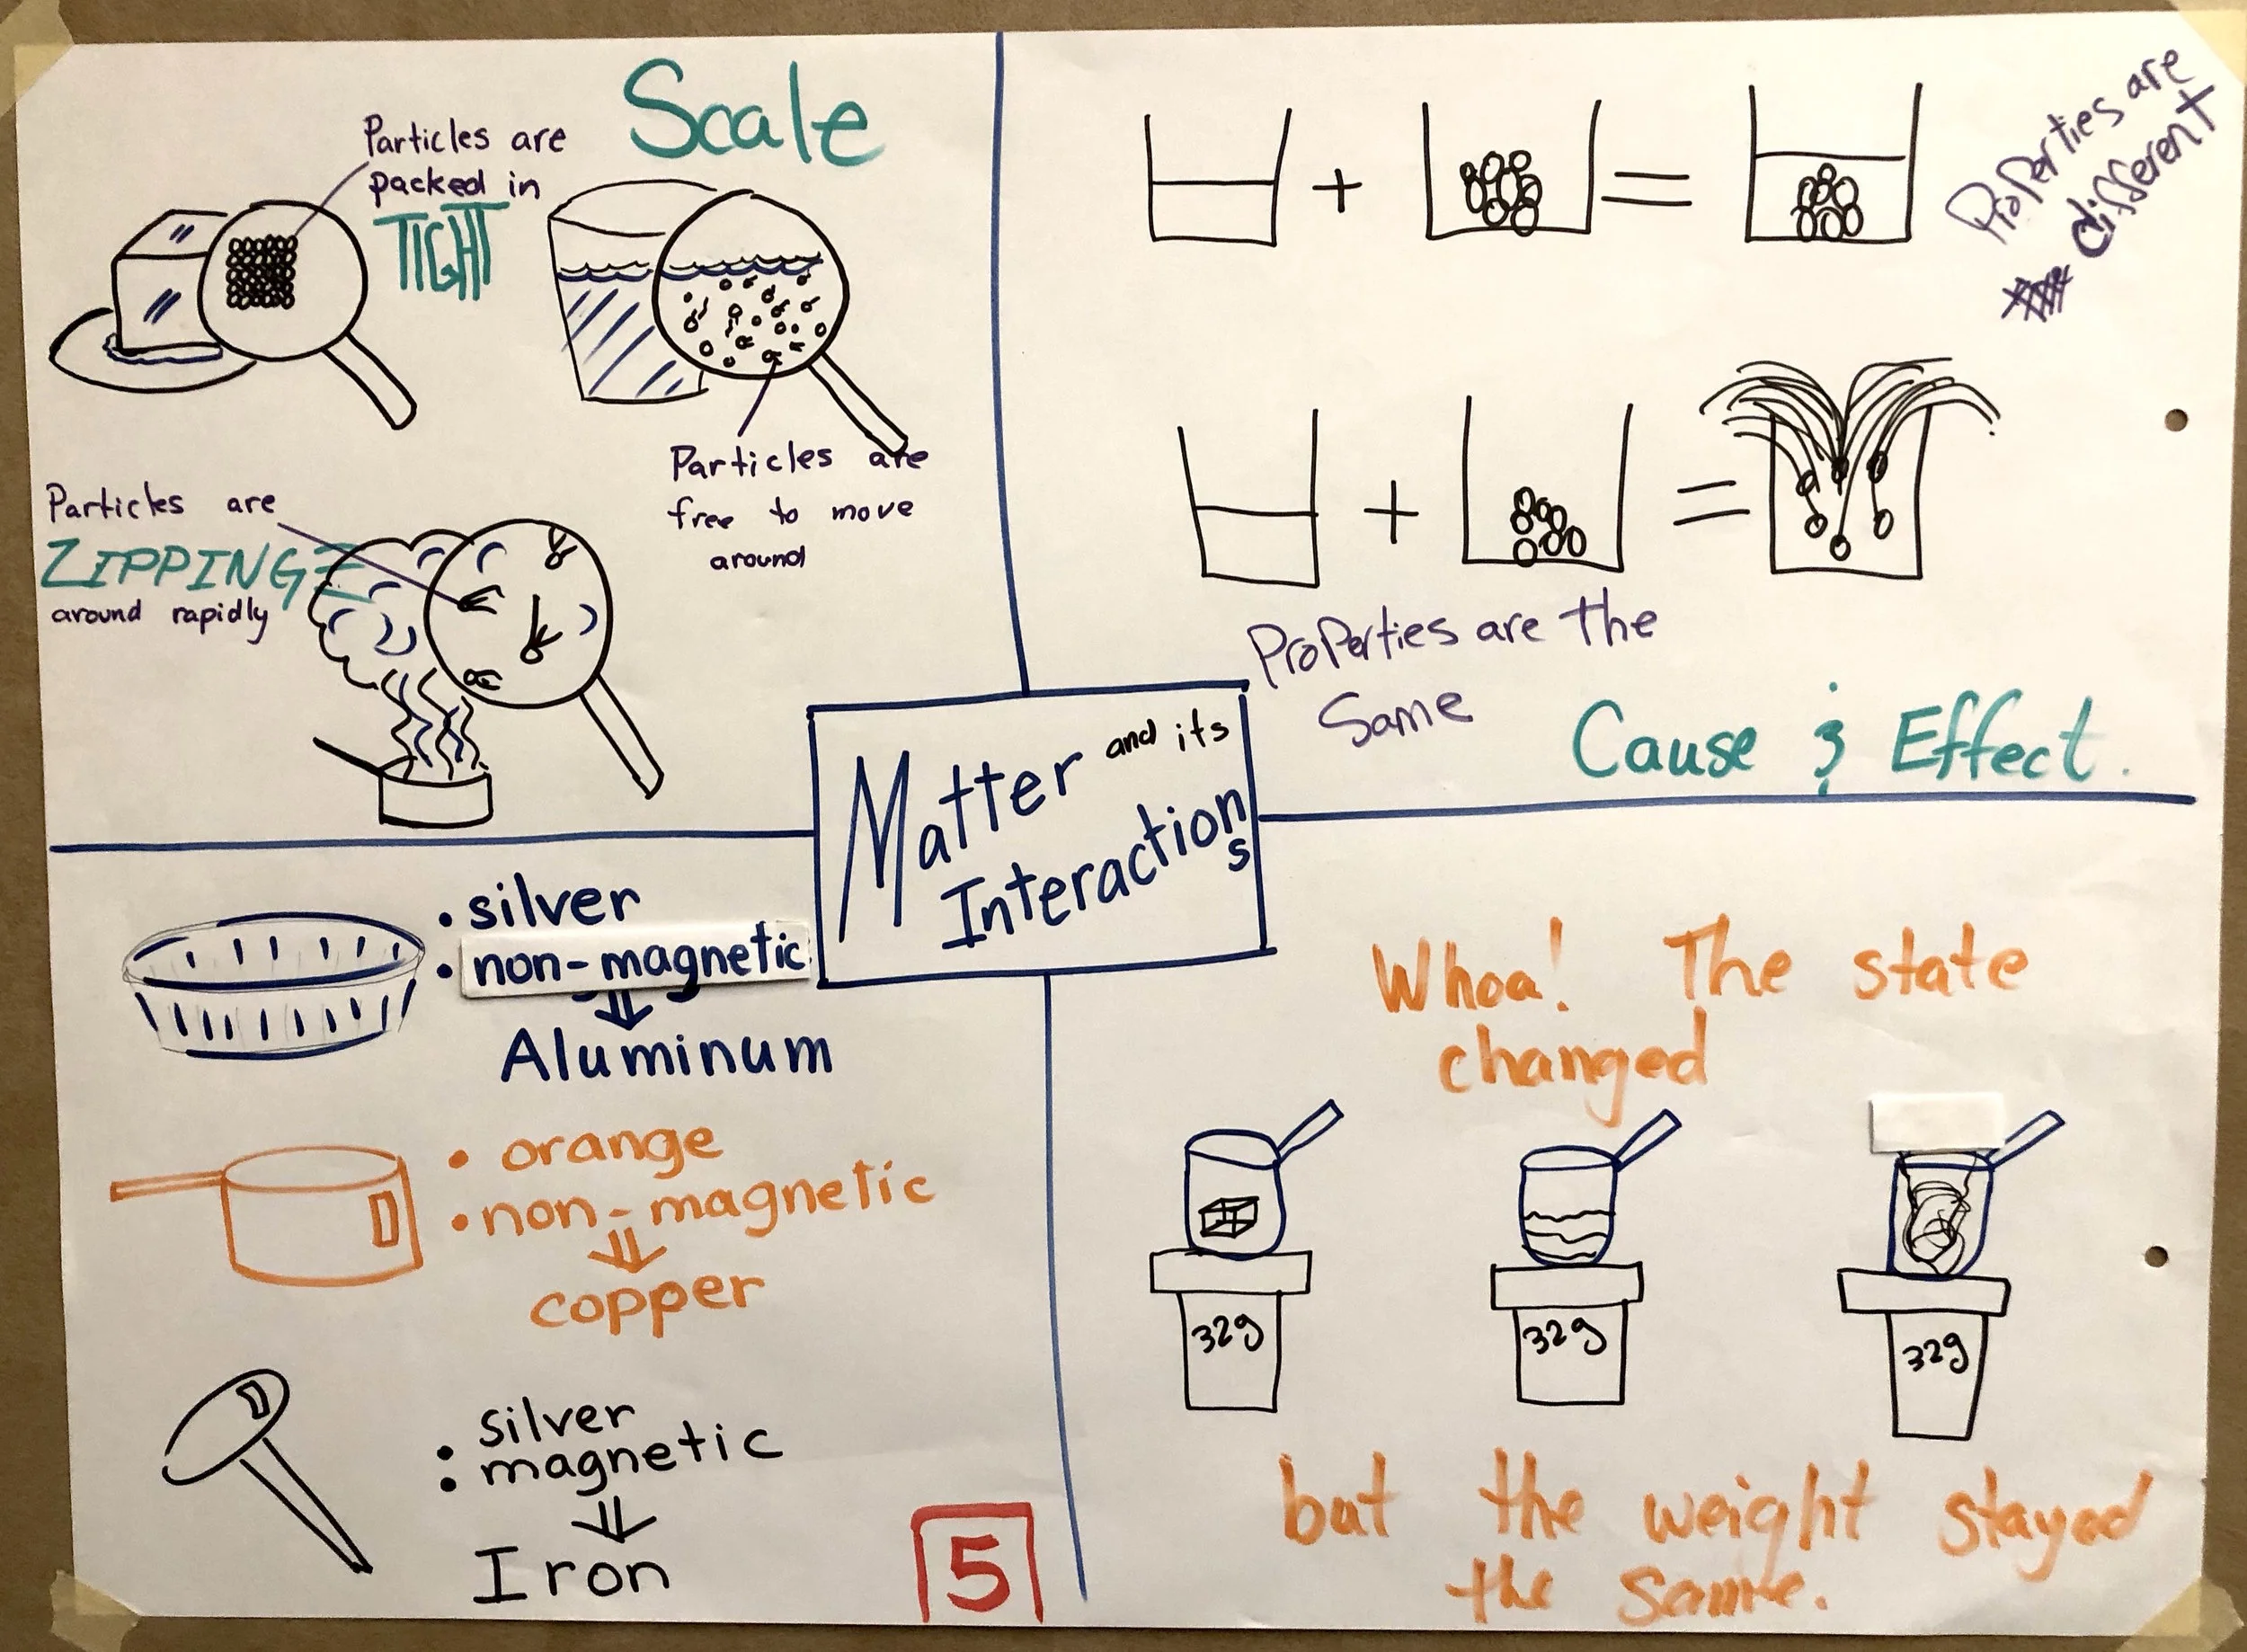 Scale
Particles are
packed in
TIGHT
Particles are
free to move
around
Particles are
ZIPPING
around rapidly
+
=
Properties are
different
+
=
Properties are the
Same
Cause & Effect.
Matter and its
Interactions
• silver
• non-magnetic
⇓
Aluminum
• orange
• non-magnetic
⇓
copper
• silver
• magnetic
⇓
Iron
5
Whoa! The state
changed
32g
32g
32g
but the weight stayed
the same.